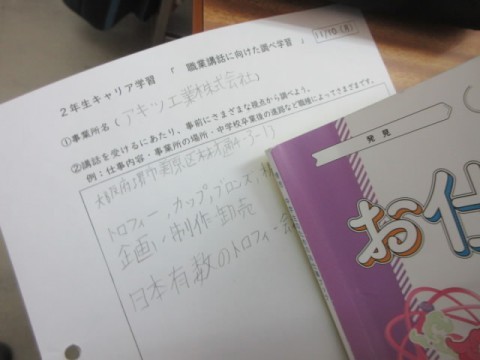 11/10(月)
2年生キャリア学習 「 職業講話に向けた調べ学習 」
①事業所名(アキツ工業株式会社)
②講話を受けるにあたり、事前にさまざまな視点から調べよう。
例:仕事内容・事業所の場所・中学校卒業後の進路など職種によってさまざまです。
大阪府堺市美原区木材通4-3-13
トロフィー,カップ,ブロンズ,
企画,制作,卸売
日本有数のトロフィー
発見
お仕